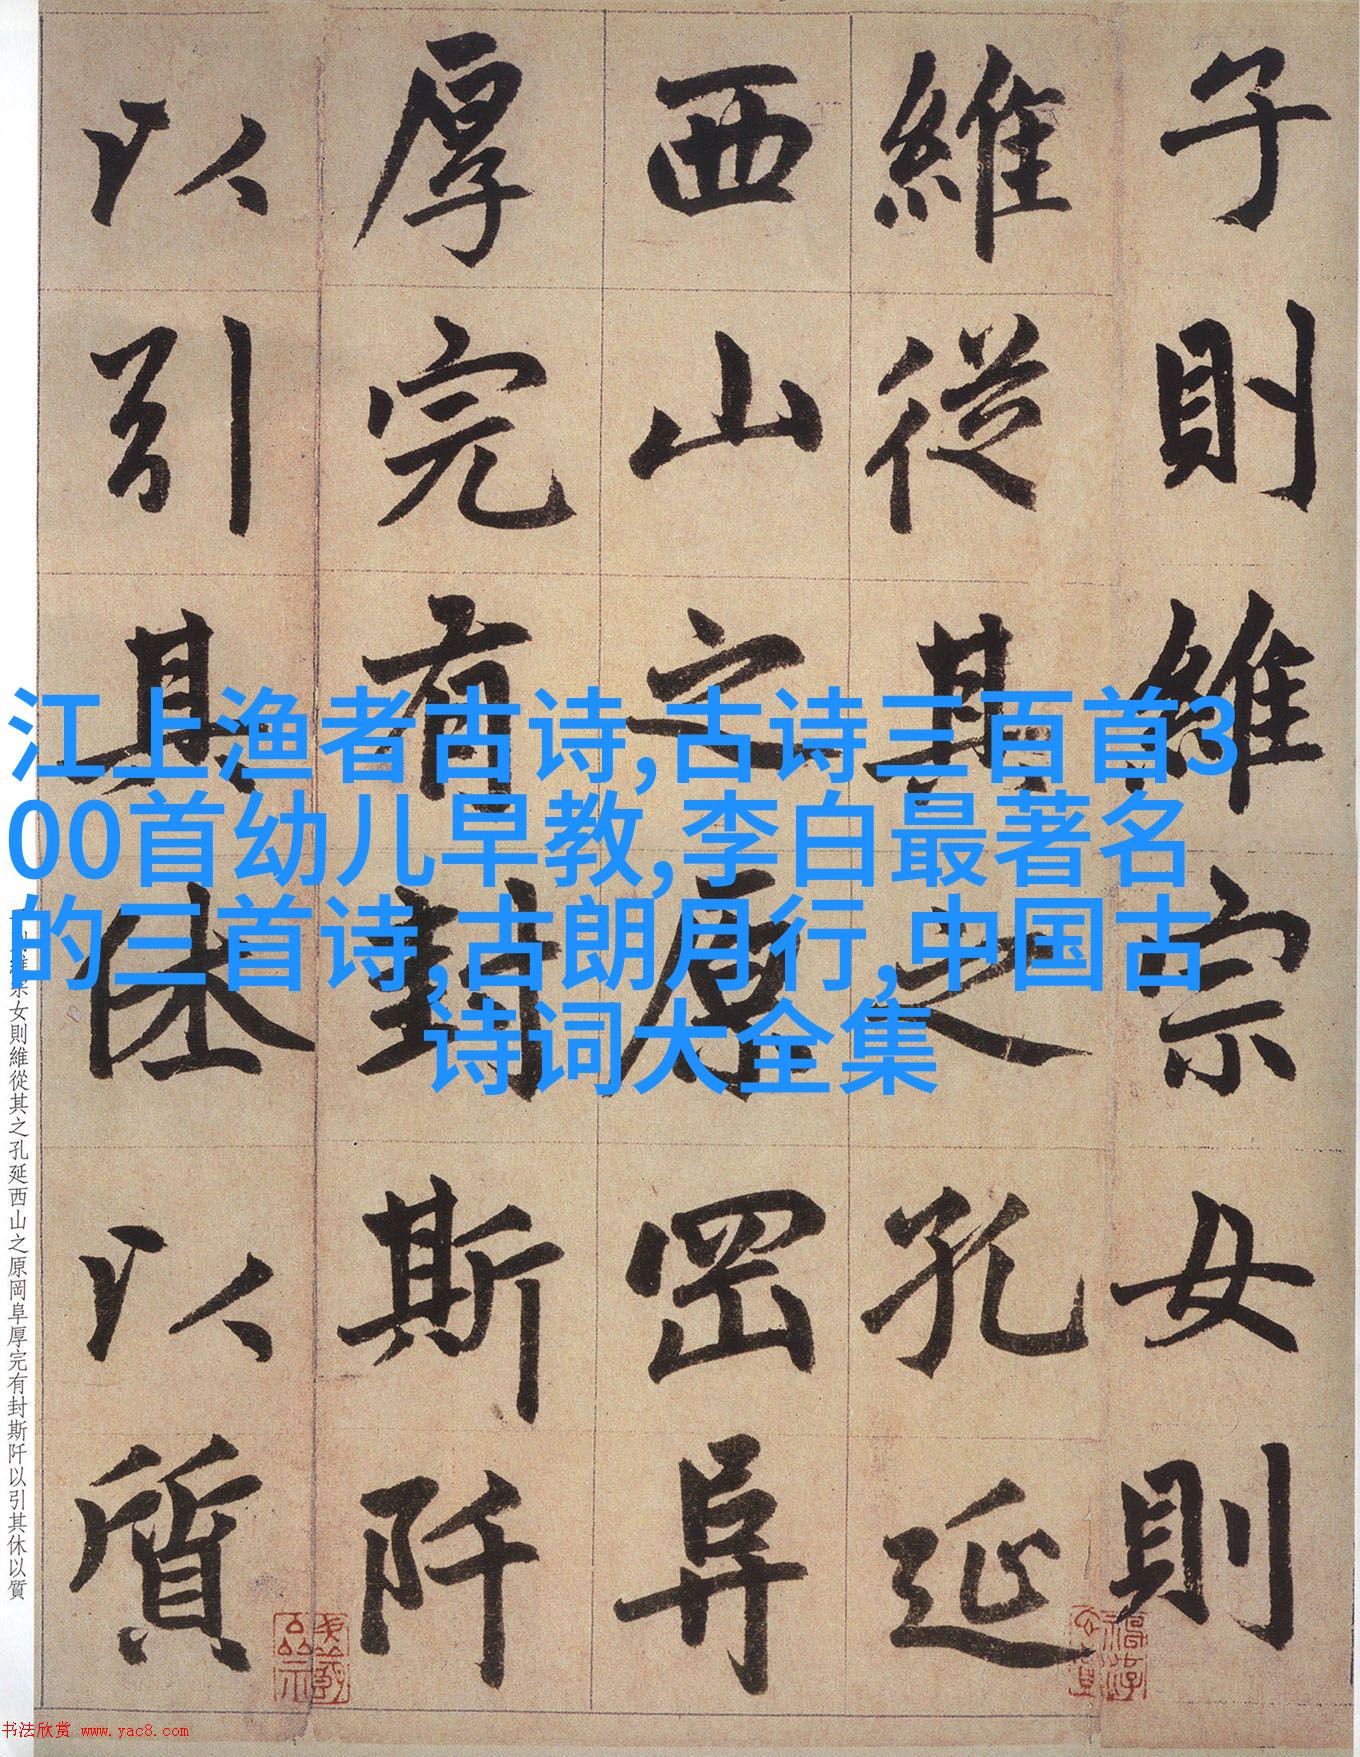 子則維宗女則
維從其之孔延
西山之原岡阜
厚完有封斯阡
以引其休以質
江上渔者古诗,古诗三百首3
00首幼儿早教,李白最著名
的三首诗,古朗月行,中国古
诗词大全集
則維宗女則維從其之孔延西山之原岡阜厚完有封斯阡以引其休以質
书法欣赏 www.yac8.com